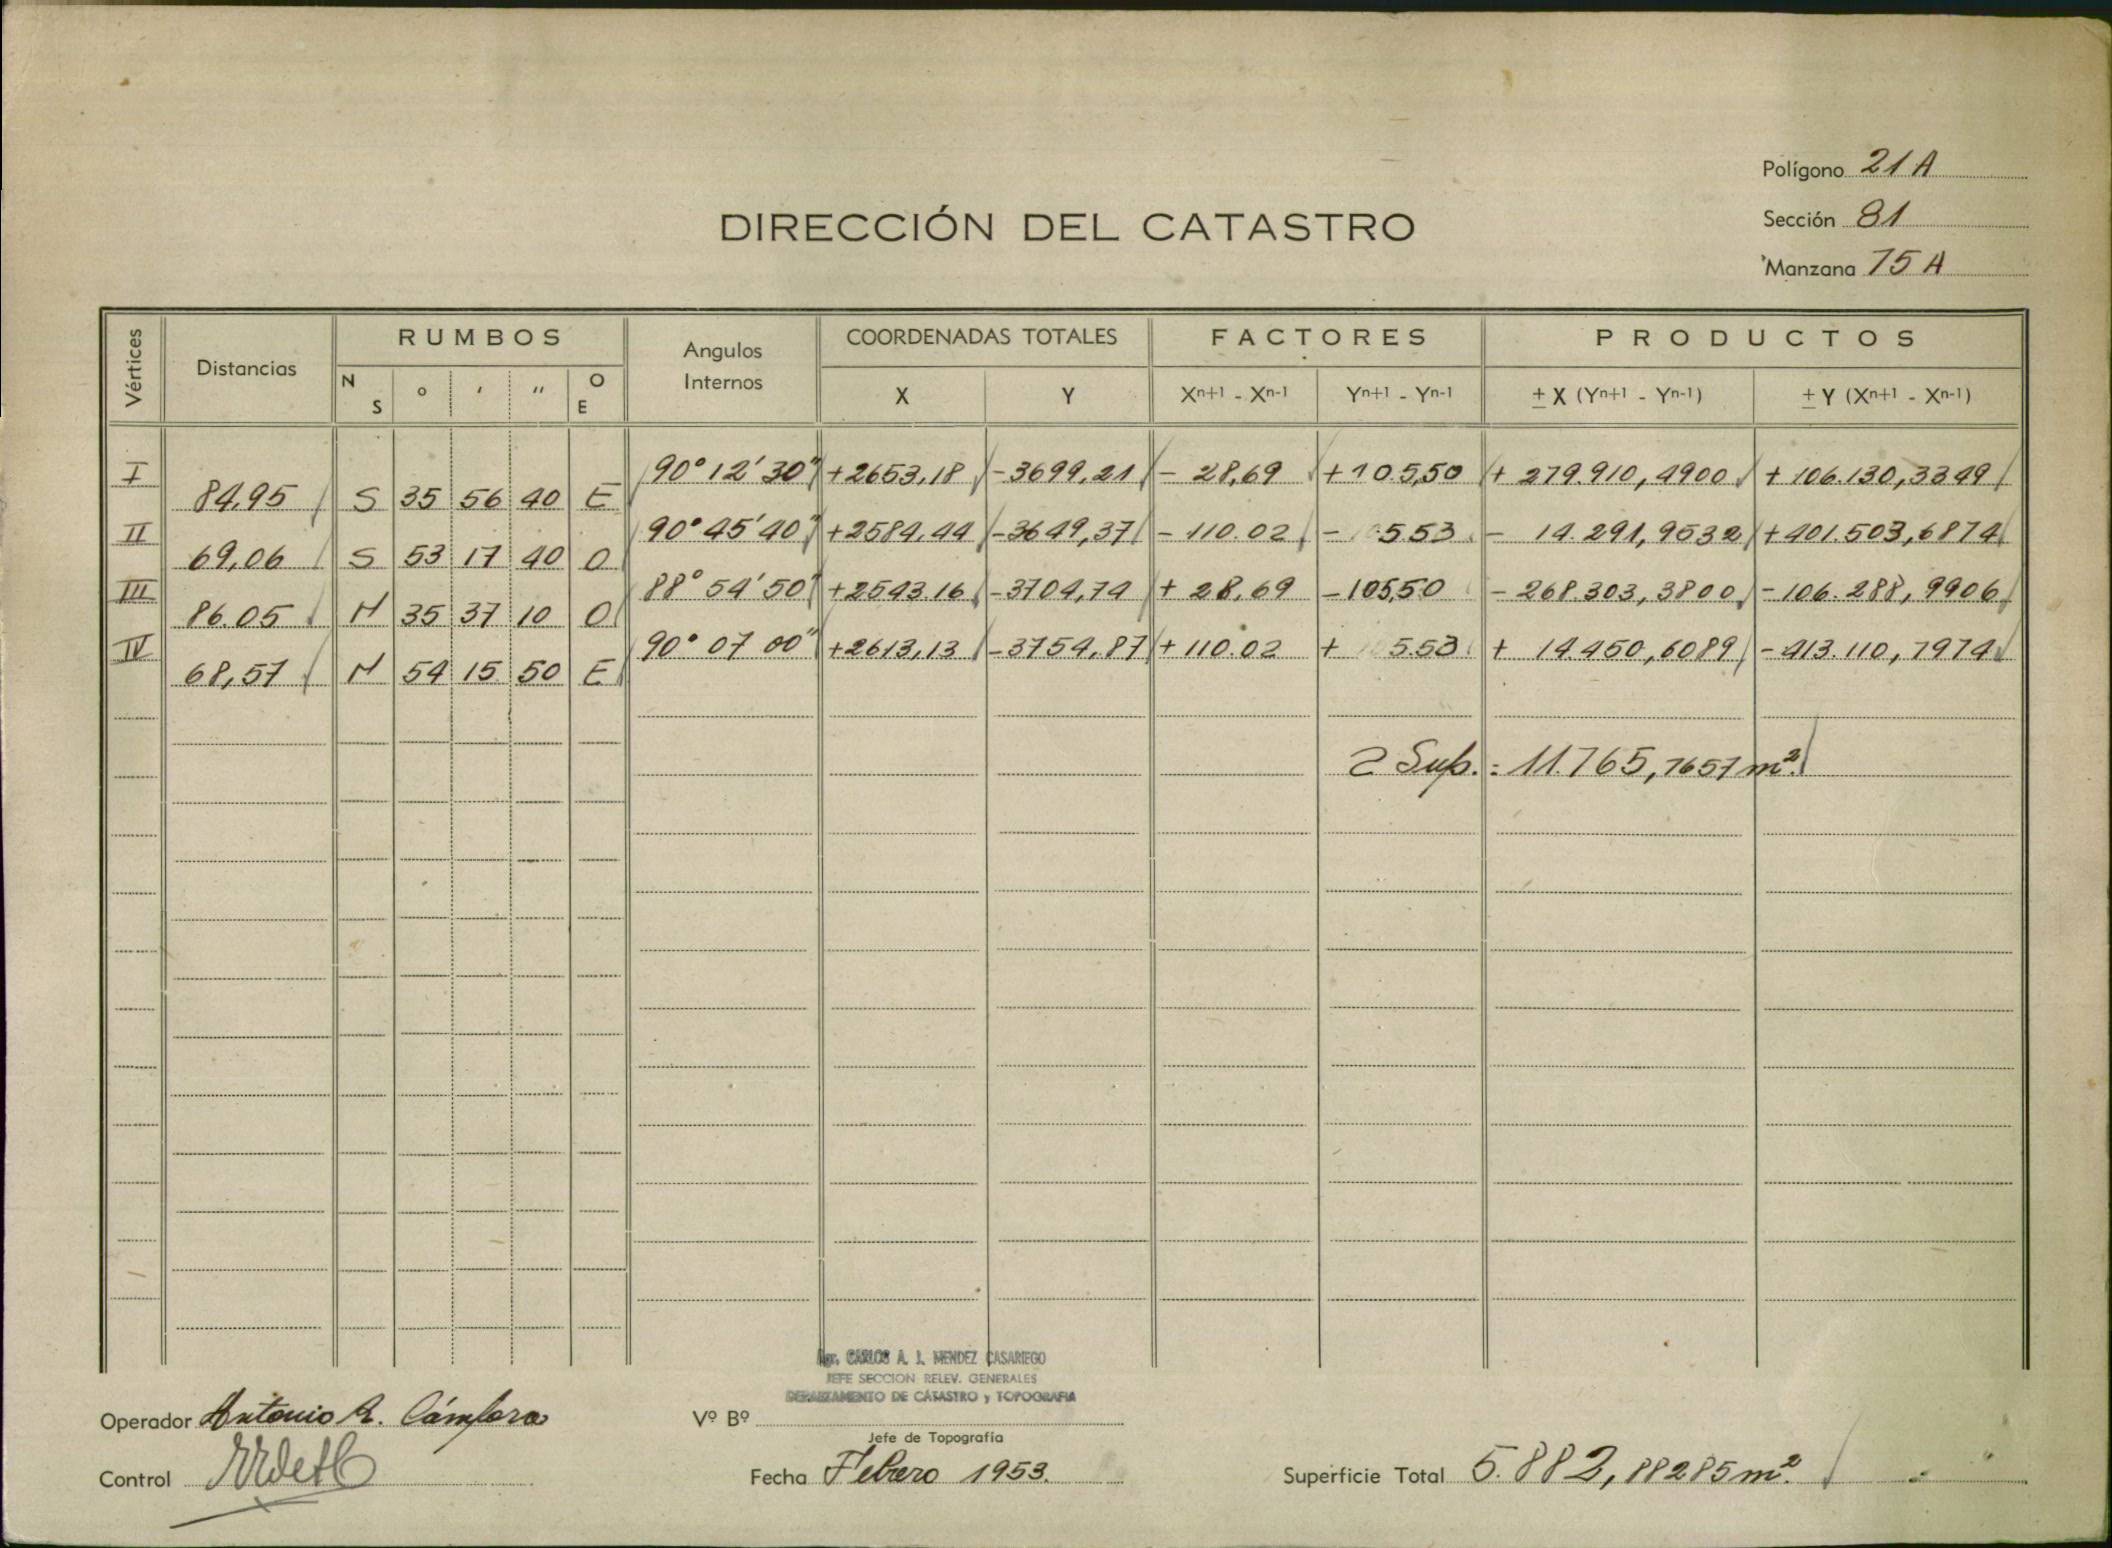 Polígono 21 A
DIRECCIÓN DEL CATASTRO
Sección 81
Manzana 75 A
Vértices
Distancias
RUMBOS
N S ° ' " O E
Angulos Internos
COORDENADAS TOTALES
X Y
FACTORES
Xn+1 - Xn-1 Yn+1 - Yn-1
PRODUCTOS
± X (Yn+1 - Yn-1) ± Y (Xn+1 - Xn-1)
I 90° 12' 30" +2653,18 -3699,21 - 28,69 +105,50 + 279.910,4900 + 106.130,3349
84,95 S 35 56 40 E
II 90° 45' 40" +2584,44 -3649,37 - 110.02 - 5.53 - 14.291,9532 +401.503,6874
69,06 S 53 17 40 O
III 88° 54' 50" +2543.16 -3704,74 + 28,69 -105,50 - 268.303,3800 -106.288,9906
86.05 N 35 37 10 O
IV 90° 07 00" +2613,13 -3754,87 + 110.02 + 5.53 + 14.450,6089 -413.110,7974
68,57 N 54 15 50 E
2 Sup. = 11.765,7657 m².
Agr. CARLOS A. J. MENDEZ CASARIEGO
JEFE SECCION RELEV. GENERALES
DEPARTAMENTO DE CATASTRO y TOPOGRAFIA
Operador Antonio R. Cámpora
Vº Bº
Jefe de Topografía
Control
Fecha Febrero 1953.
Superficie Total 5.882,88285 m².